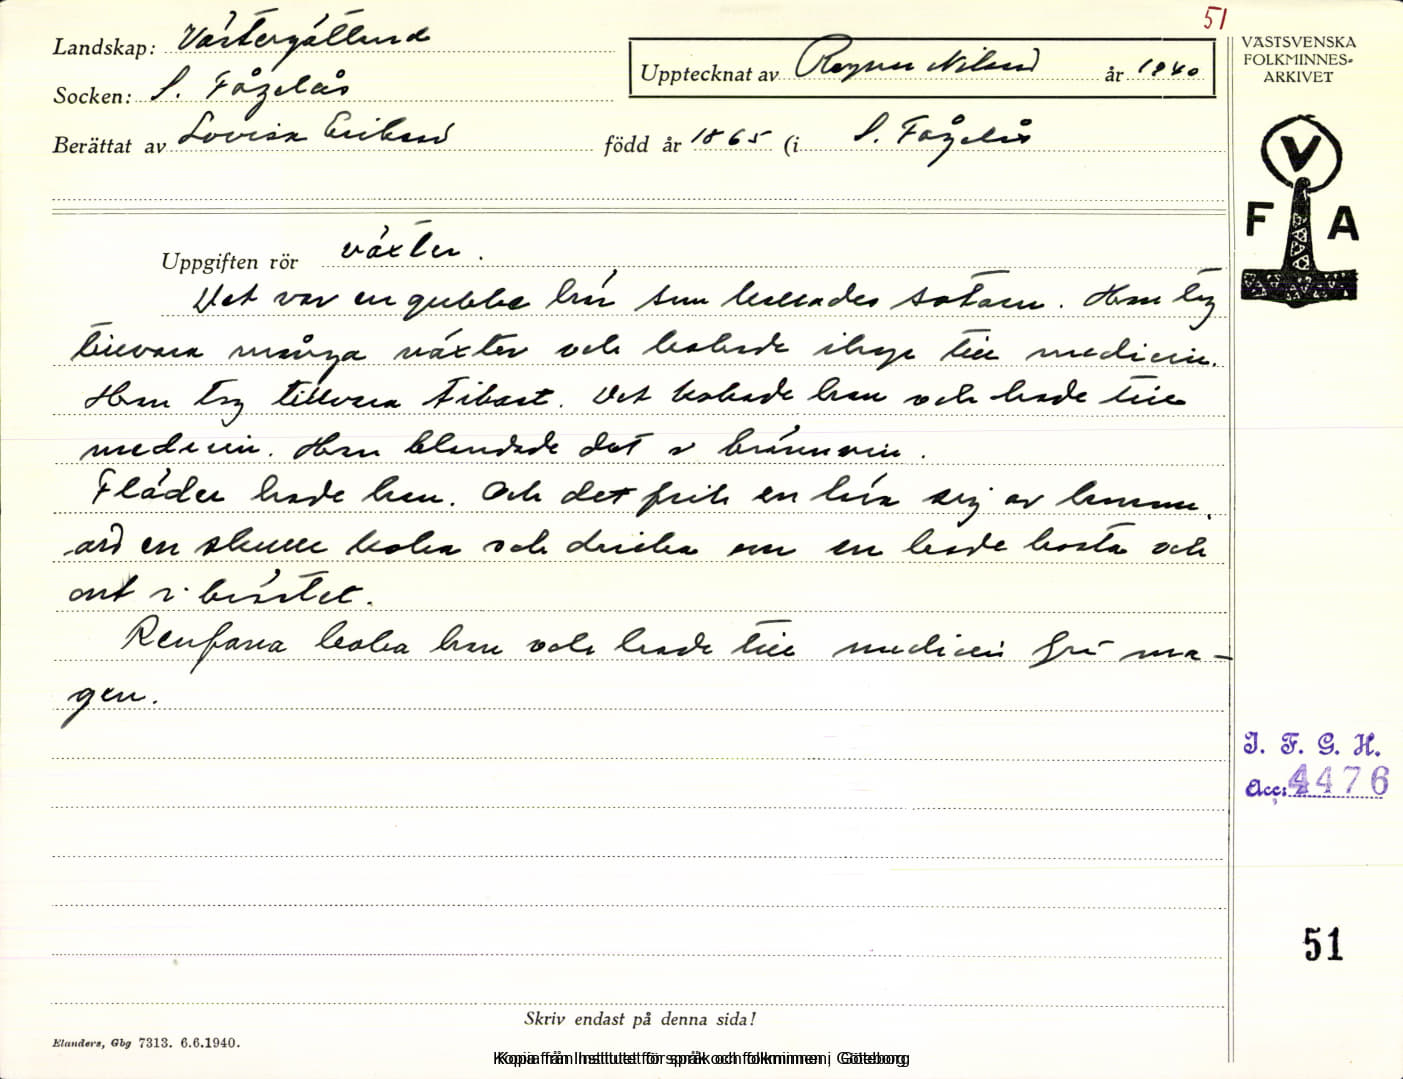 51
Landskap: Västergötland
Socken: S. Fågelås
Upptecknat av Ragnar Nilsson år 1940
Berättat av Lovisa Eriksson född år 1865 (i S. Fågelås
VÄSTSVENSKA
FOLKMINNES-
ARKIVET
V
F A
Uppgiften rör växter.
Det var en gubbe här som kallades sotarn. Han tog
tillvara många växter och kokade ihop till medicin.
Han tog tillvara Tibast. Det kokade han och hade till
medicin. Han blandade det i brännvin.
Fläder hade han. Och det fick en lära sig av honom,
att en skulle koka och dricka om en hade hosta och
ont i bröstet.
Renfana koka han och hade till medicin för ma-
gen.
I. F. G. H.
Acc: 4476
51
Skriv endast på denna sida!
Elanders, Gbg 7313. 6.6.1940.
Kopia från Institutet för språk och folkminnen, Göteborg